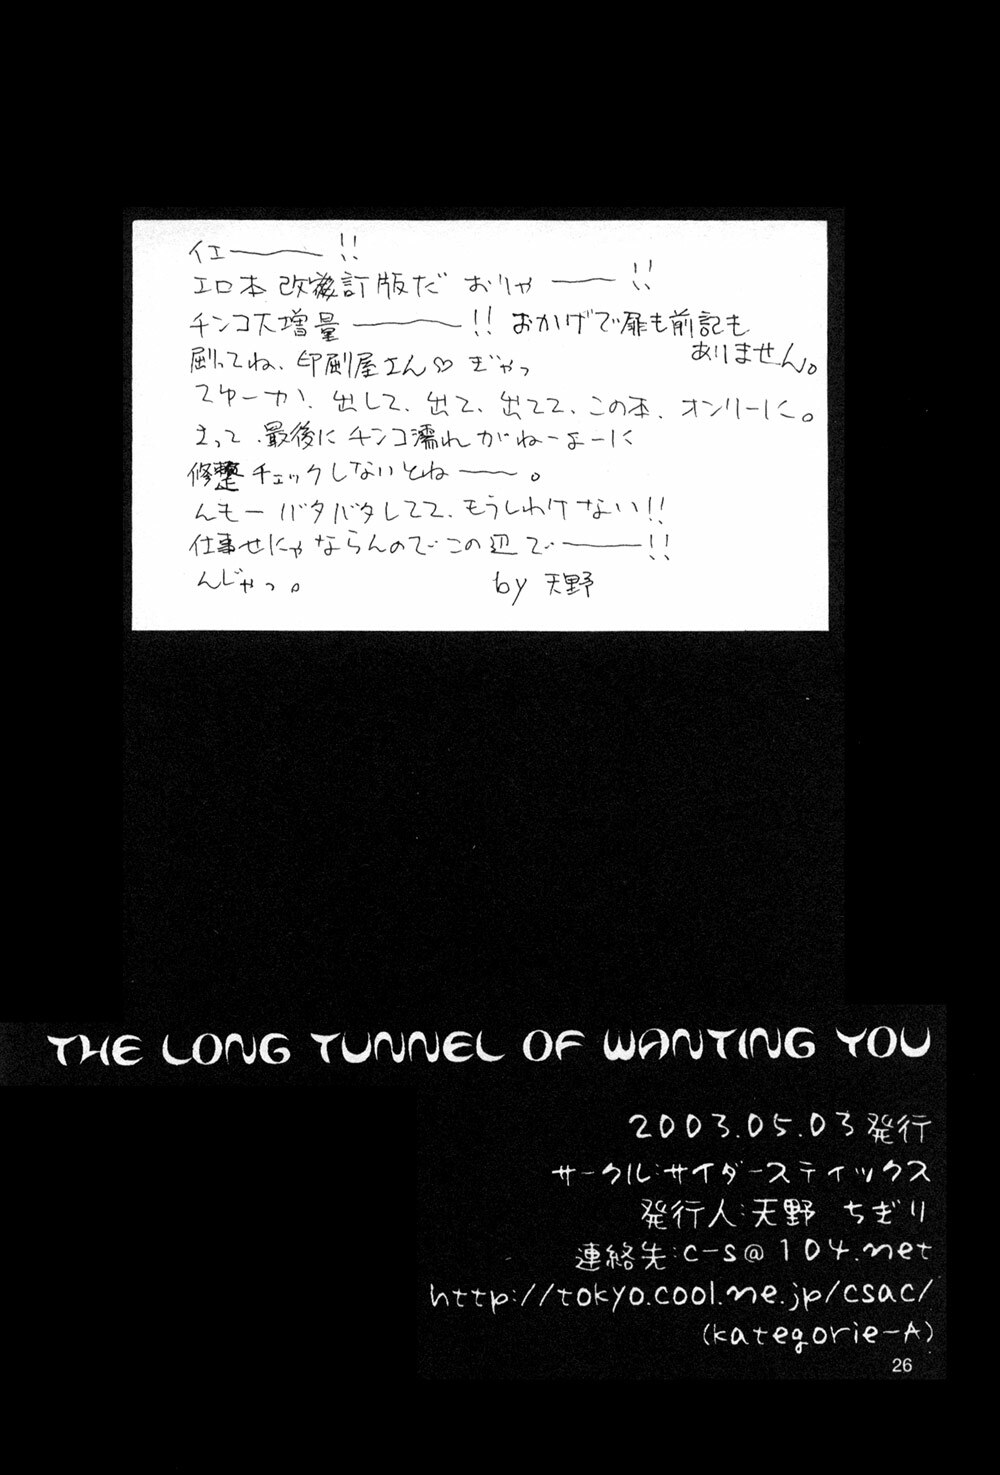 イエー──!!
エロ本 改訂版だ おりゃ──!!
チンコ大増量 ───!! おかげで扉も前記も
ありません。
刷ってね、印刷屋さん♡ ぎゃっ
てゆーか、出して、出て、出てて、この本、オンリーに。
さって、最後に チンコ濡れがねーよーに
修整チェックしないとねー──。
んもー バタバタしてて、もうしわけない!!
仕事せにゃならんのでこの辺で───!!
んじゃっ。 by 天野
THE LONG TUNNEL OF WANTING YOU
2003.05.03発行
サークル:サイダースティックス
発行人:天野 ちぎり
連絡先:c-s@104.net
http://tokyo.cool.ne.jp/csac/
(kategorie-A)
26